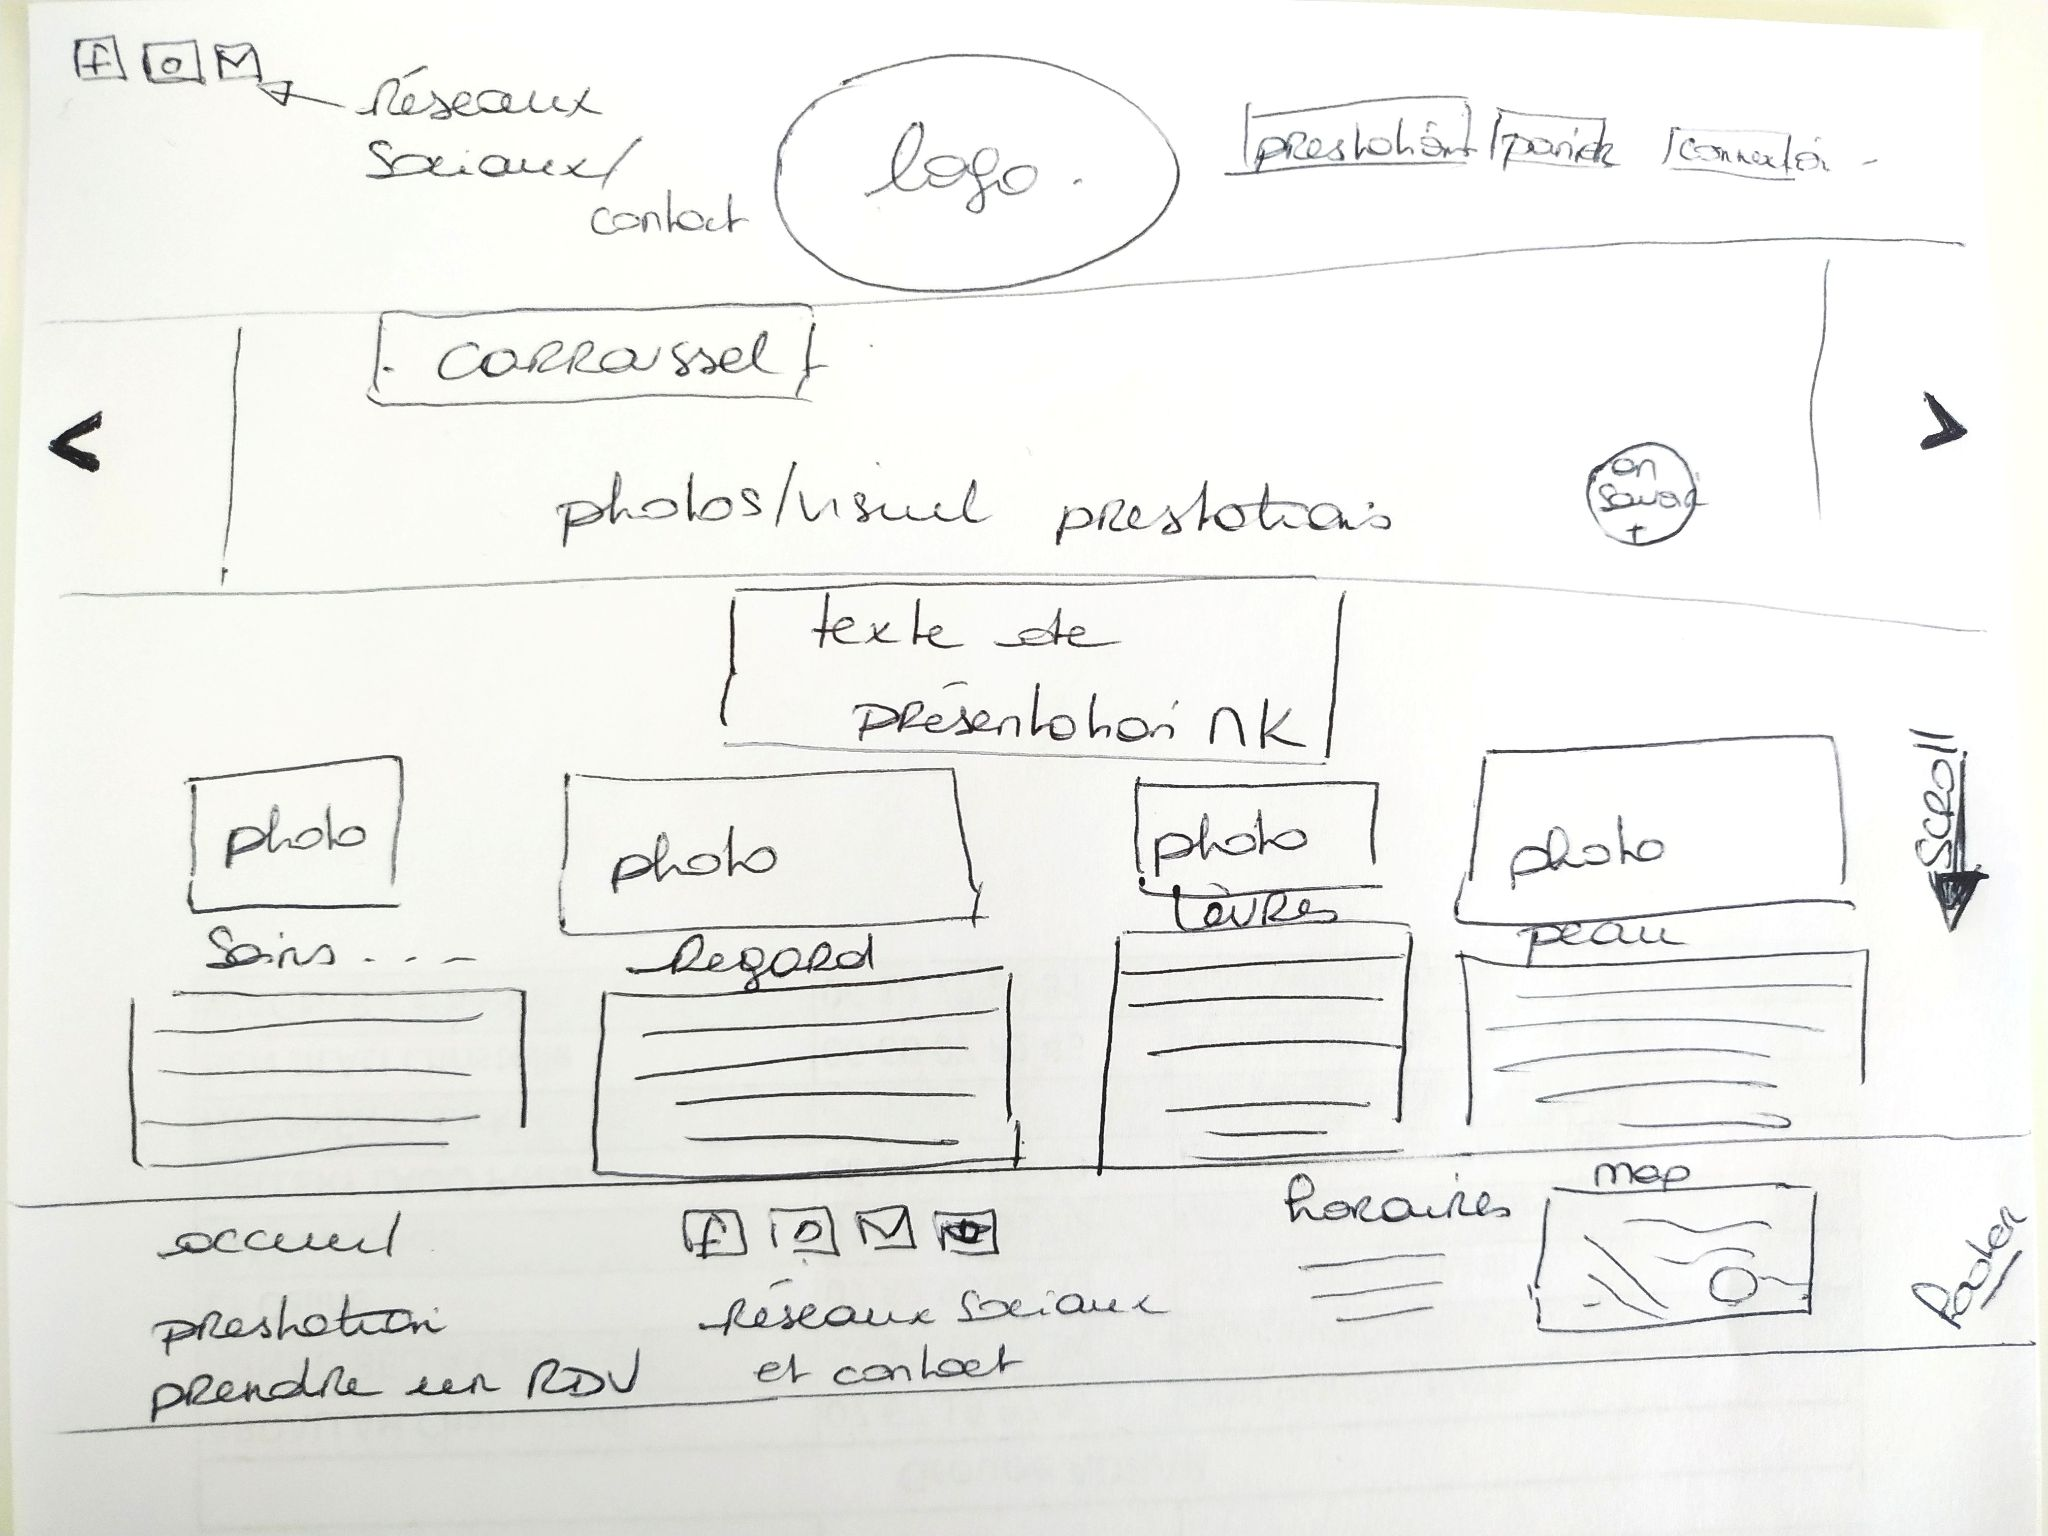 f
Réseaux
Sociaux/
contact
logo.
prestation panier connexion
CARRoussel
<
>
photos/visuel prestations
en
savoir
+
texte de
présentation NK
photo
photo
photo
photo
SCROll
Soins...
Regard
lèvres
peau
accueil
prestation
prendre un RDV
f
Réseaux Sociaux
et contact
horaires
map
footer